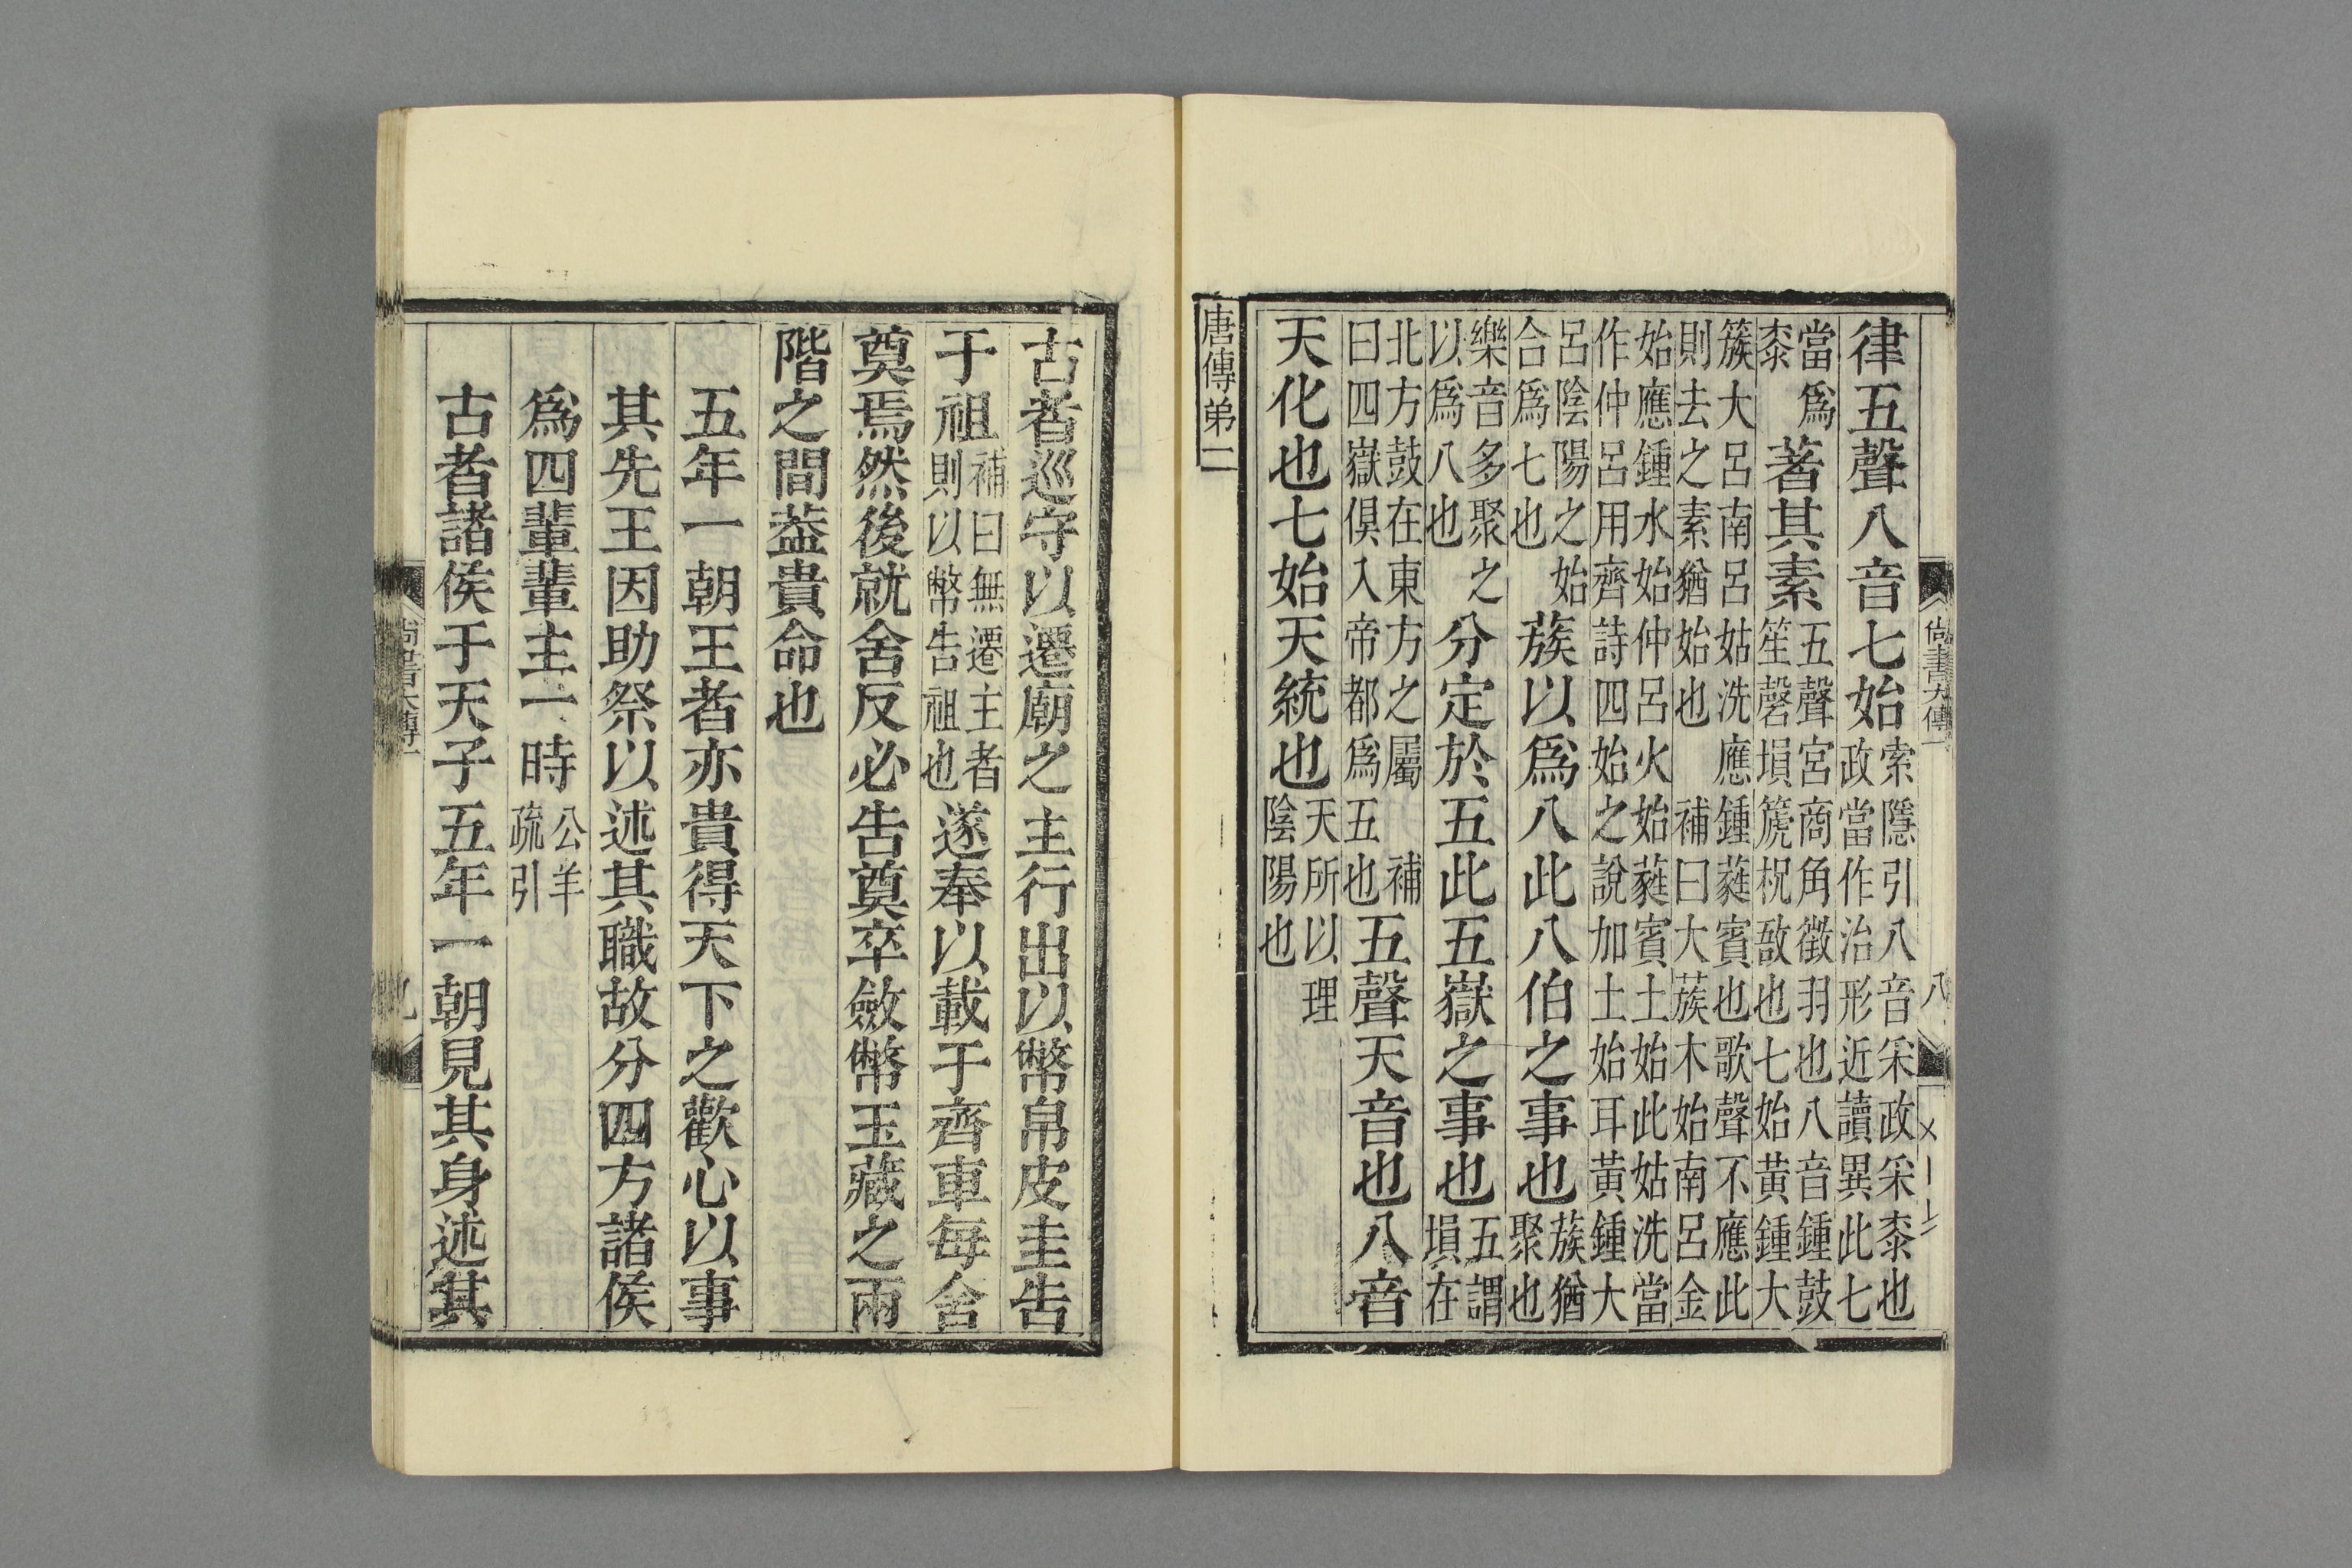 尚書大傳一
八
律五聲八音七始索隱引八音采政采桼也政當作治形近讀異此七
當爲桼著其素五聲宮商角徵羽也八音鍾鼓笙磬塤箎柷敔也七始黃鍾大
簇大呂南呂姑洗應鍾蕤賓也歌聲不應此則去之素猶始也補曰大蔟木始南呂金
始應鍾水始仲呂火始蕤賓土始此姑洗當作仲呂用齊詩四始之說加土始耳黃鍾大
呂陰陽之始合爲七也蔟以爲八此八伯之事也蔟猶聚也
樂音多聚之以爲八也分定於五此五嶽之事也五謂塤在
北方鼓在東方之屬補曰四嶽俱入帝都爲五也五聲天音也八音
天化也七始天統也天所以理陰陽也
唐傳弟二
古者巡守以遷廟之主行出以幣帛皮圭告
于祖補曰無遷主者則以幣告祖也遂奉以載于齊車每舍
奠焉然後就舍反必告奠卒斂幣玉藏之兩
階之間葢貴命也
五年一朝王者亦貴得天下之歡心以事
其先王因助祭以述其職故分四方諸侯
爲四輩輩主一時公羊疏引
古者諸侯于天子五年一朝見其身述其
尚書大傳一
九